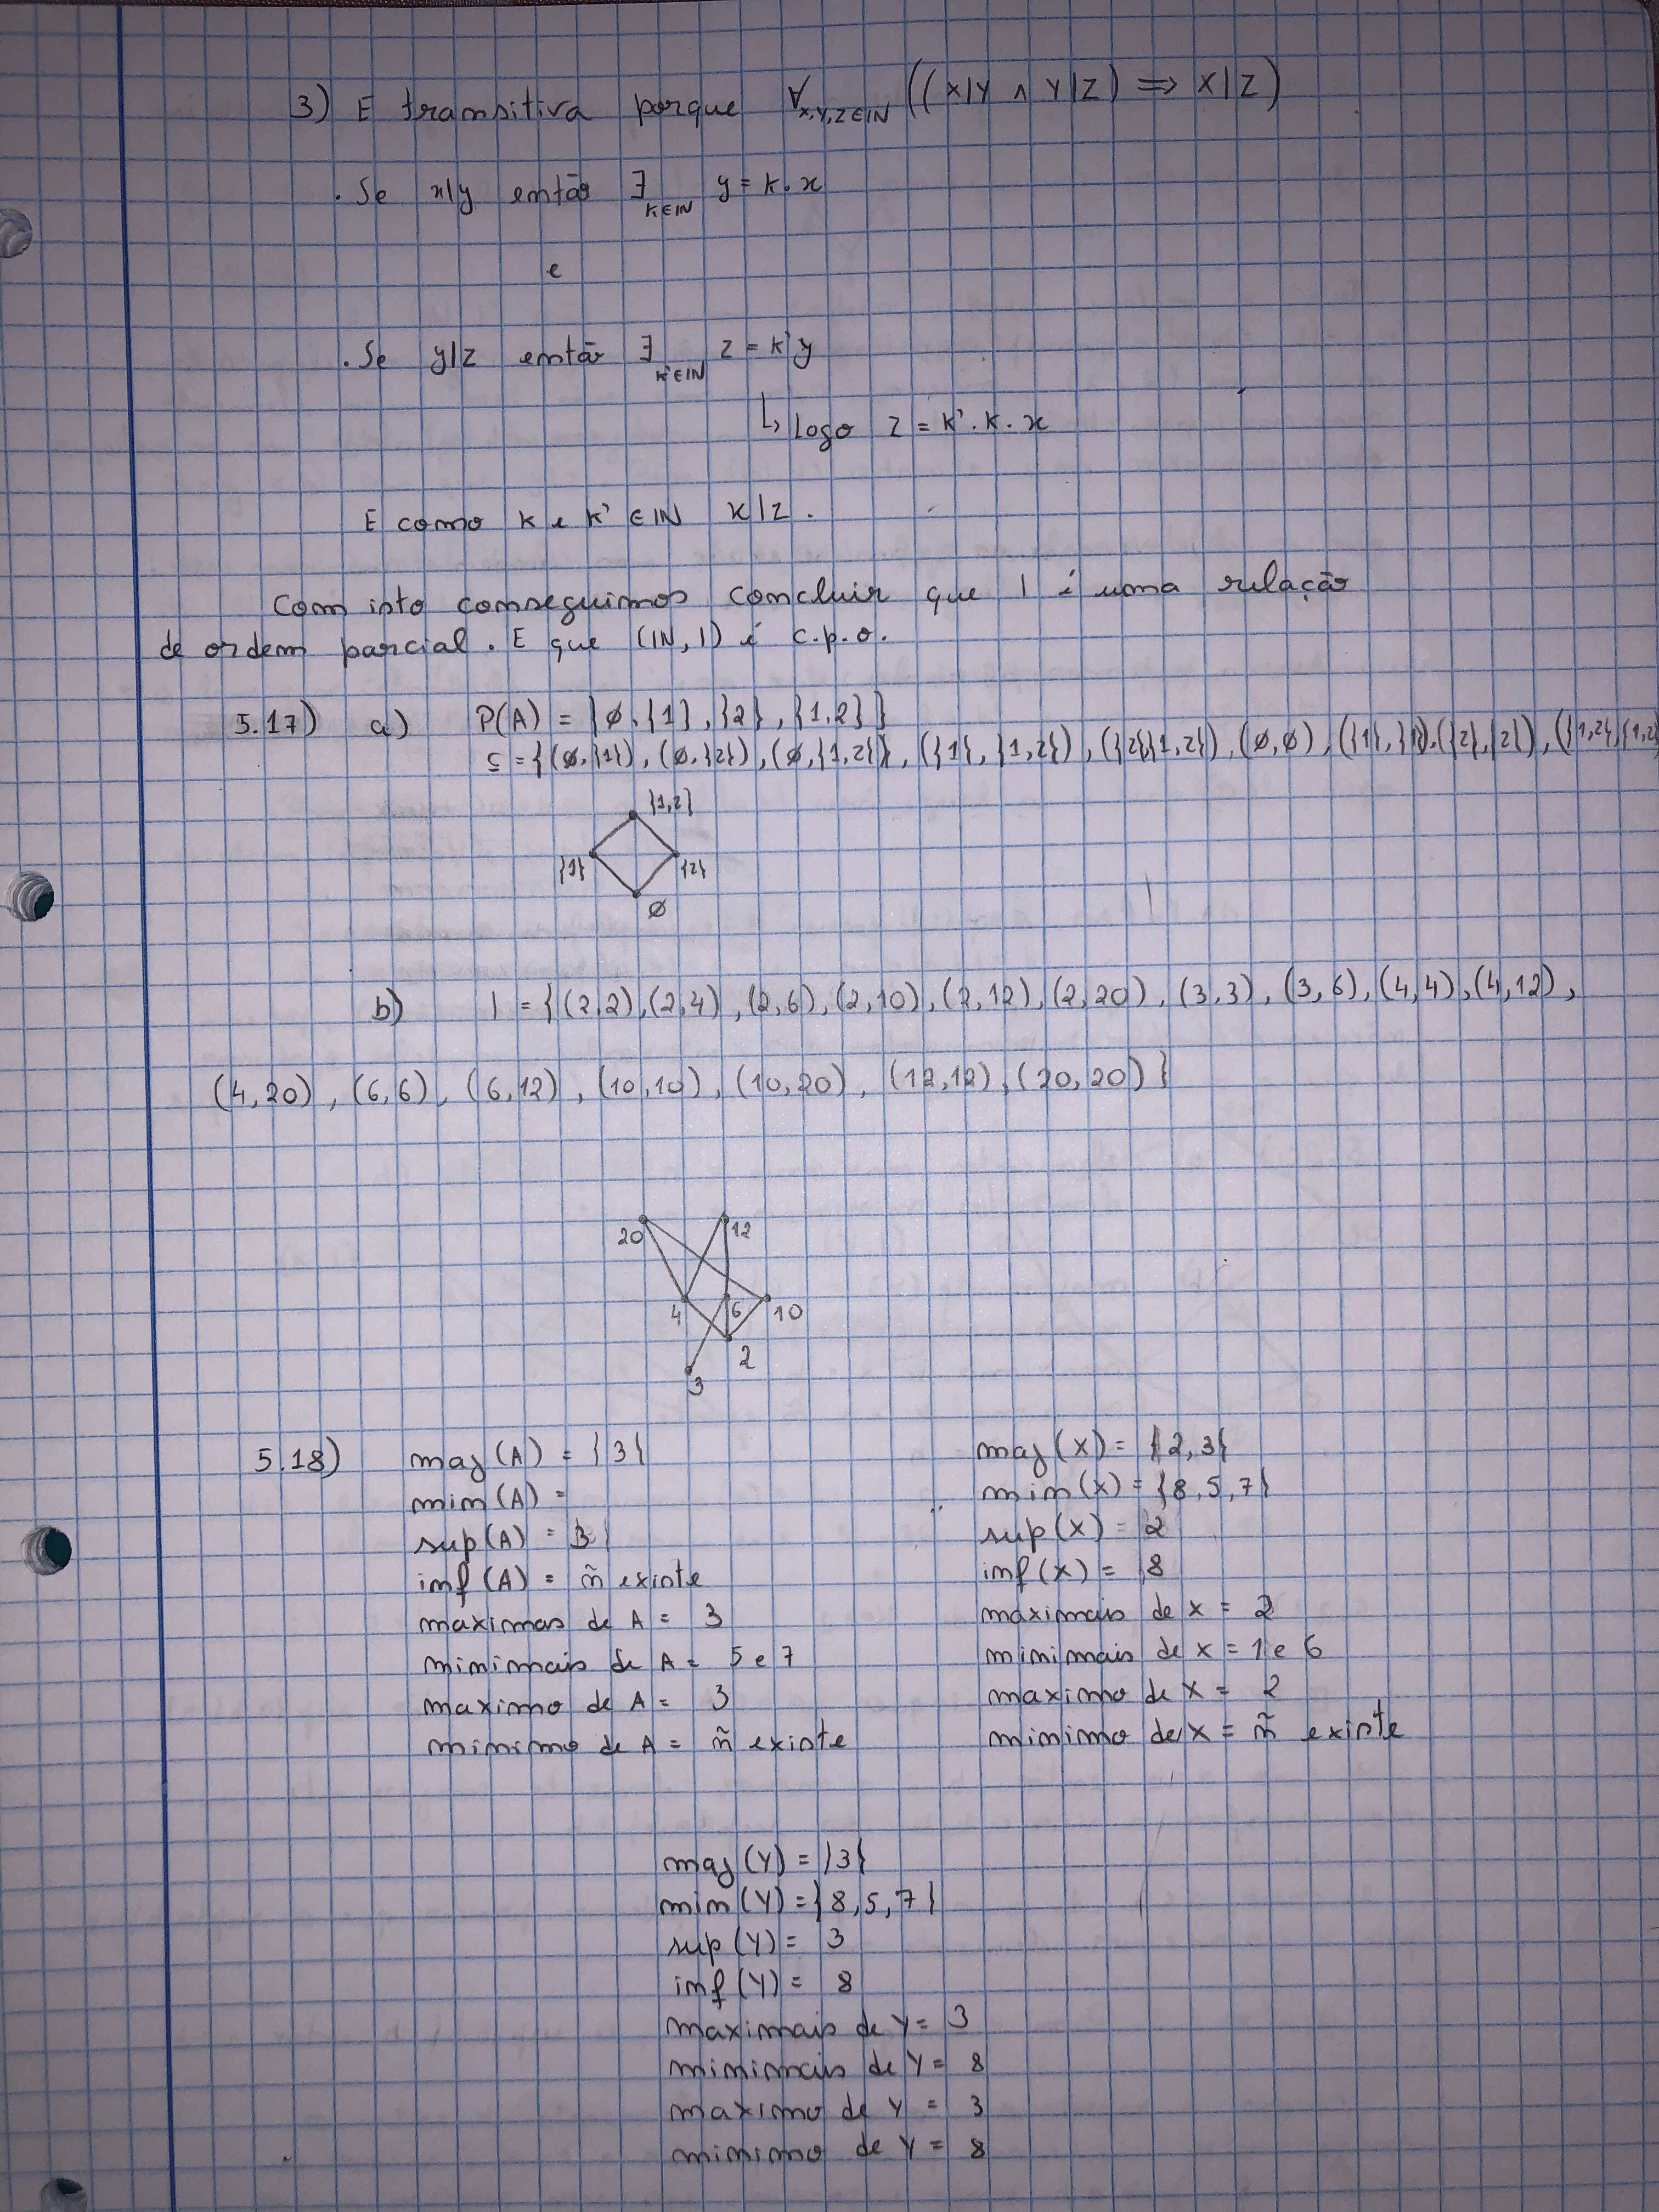 3) E transitiva porque ∀x,y,z∈IN ((x|y ∧ y|z) ⇒ x|z)
. Se x|y então ∃k∈IN y = k.x
e
. Se y|z então ∃k'∈IN z = k'y
↳ Logo z = k'.k.x
E como k e k' ∈ IN x|z .
Com isto conseguimos concluir que | é uma relação
de ordem parcial. E que (IN, |) é c.p.o.
5.17) a) P(A) = {∅, {1}, {2}, {1,2}}
⊆ = {(∅,{1}), (∅,{2}), (∅,{1,2}), ({1},{1,2}), ({2},{1,2}), (∅,∅), ({1},{1}), ({2},{2}), ({1,2},{1,2
{1,2}
{1} {2}
∅
b) | = {(2,2), (2,4), (2,6), (2,10), (2,12), (2,20), (3,3), (3,6), (4,4), (4,12),
(4,20), (6,6), (6,12), (10,10), (10,20), (12,12), (20,20)}
20 12
4 6 10
2
3
5.18) maj(A) = {3}
min(A) =
sup(A) = 3
inf(A) = ñ existe
maximas de A = 3
minimais de A = 5 e 7
maximo de A = 3
minimo de A = ñ existe
maj(X) = {2,3}
min(X) = {8,5,7}
sup(X) = 2
inf(X) = 8
maximais de X = 2
minimais de X = 1 e 6
maximo de X = 2
minimo de X = ñ existe
maj(Y) = {3}
min(Y) = {8,5,7}
sup(Y) = 3
inf(Y) = 8
maximais de Y = 3
minimais de Y = 8
maximo de Y = 3
minimo de Y = 8